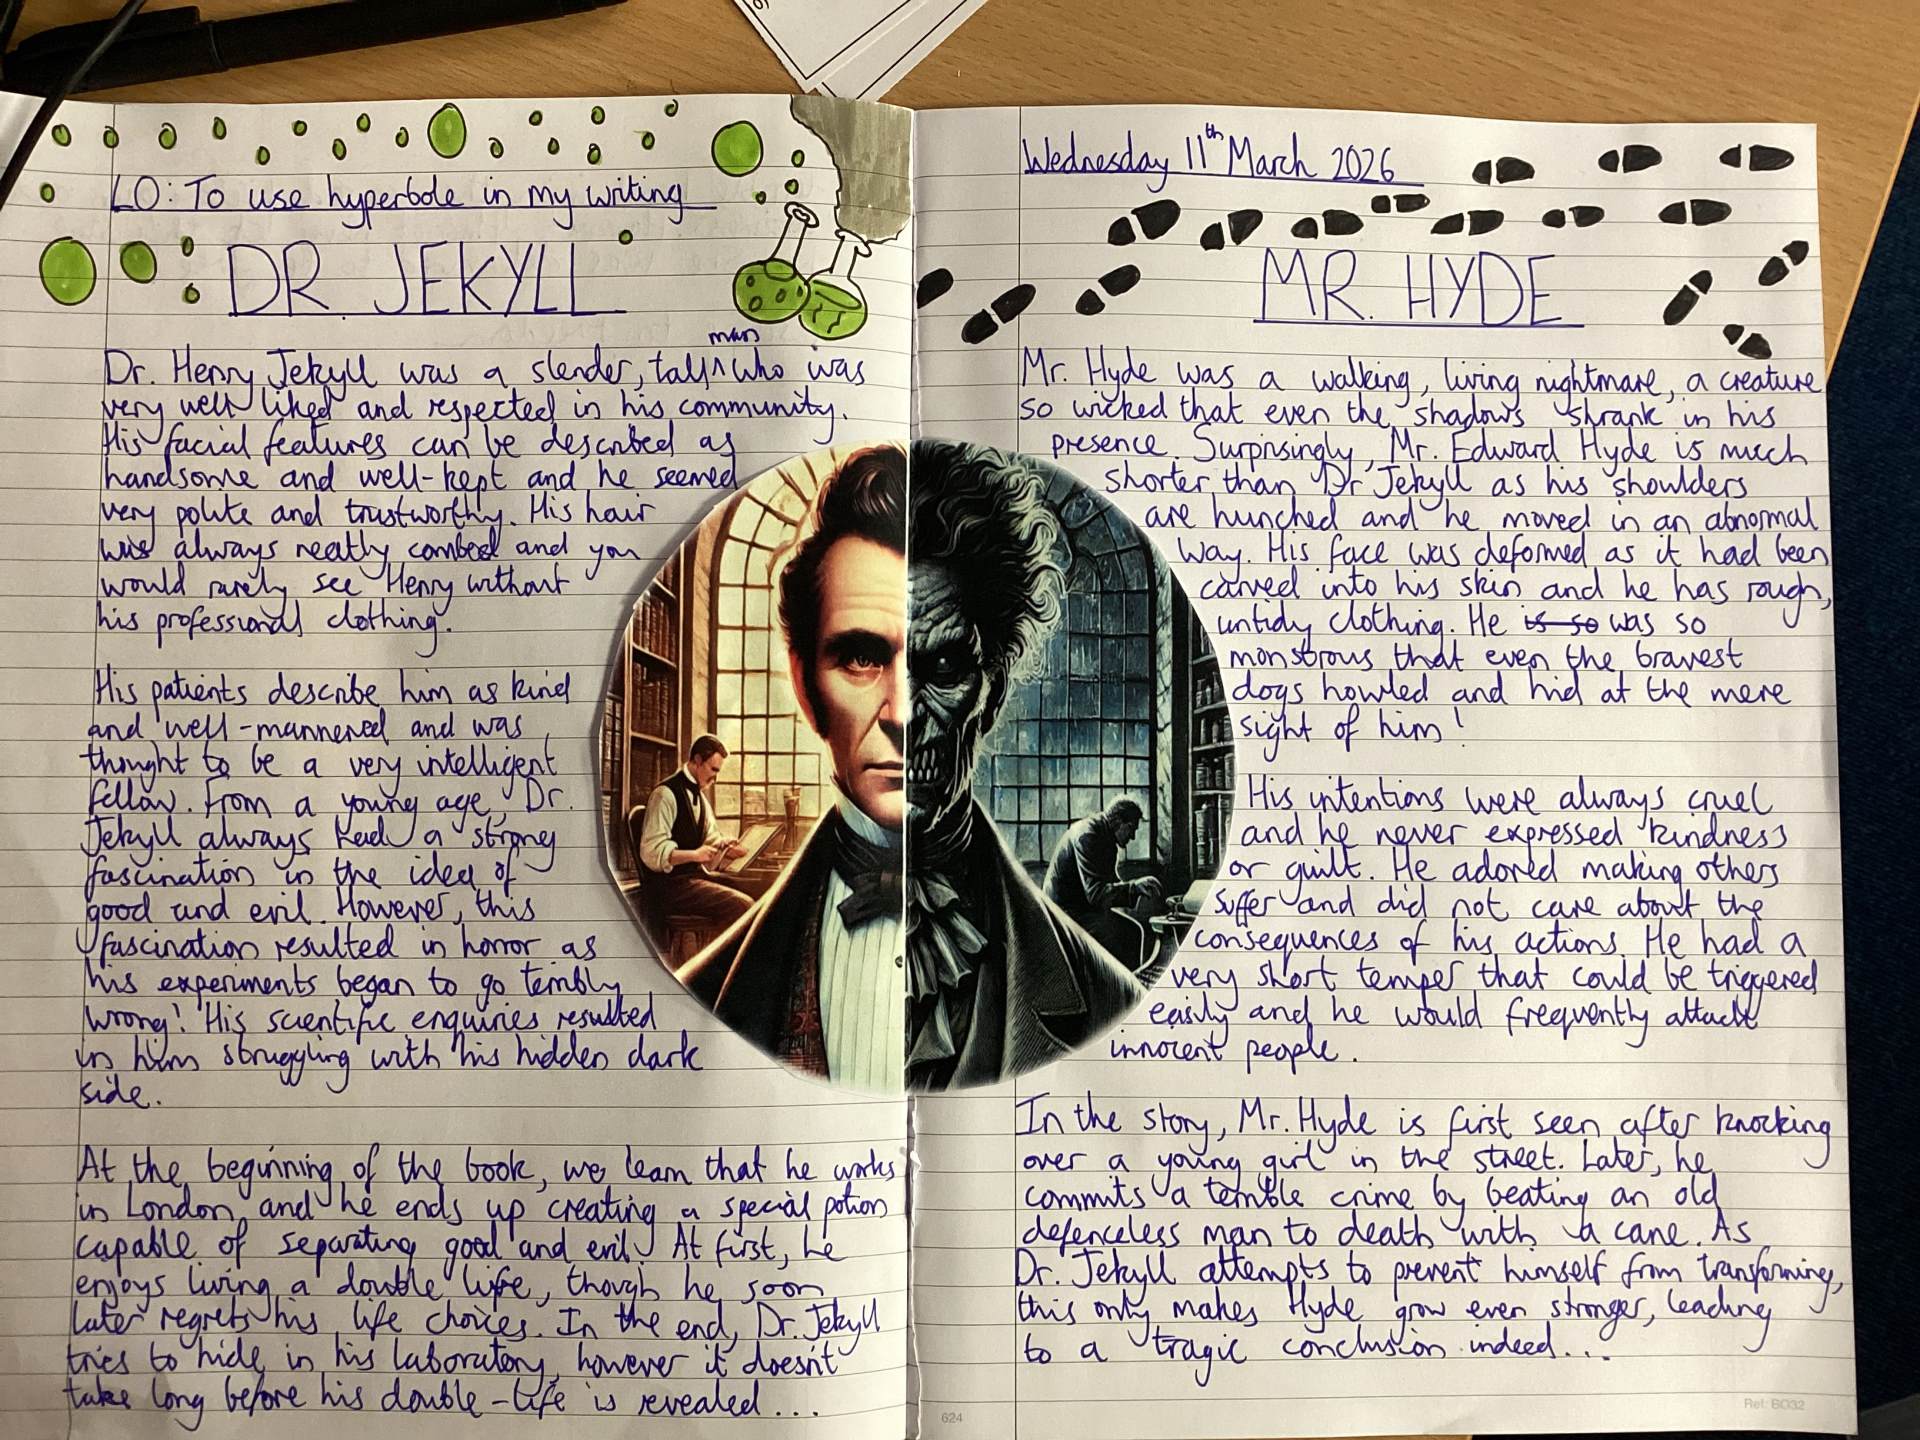 LO: To use hyperbole in my writing
DR. JEKYLL
Dr. Henry Jekyll was a slender, tall^ man who was
very well liked and respected in his community.
His facial features can be described as
handsome and well-kept and he seemed
very polite and trustworthy. His hair
was always neatly combed and you
would rarely see Henry without
his professional clothing.
His patients describe him as kind
and well-mannered and was
thought to be a very intelligent
fellow. From a young age, Dr.
Jekyll always had a strong
fascination in the idea of
good and evil. However, this
fascination resulted in horror as
his experiments began to go terribly
wrong! His scientific enquiries resulted
in him struggling with his hidden dark
side.
At the beginning of the book, we learn that he works
in London and he ends up creating a special potion
capable of separating good and evil. At first, he
enjoys living a double life, though he soon
later regrets his life choices. In the end, Dr. Jekyll
tries to hide in his laboratory, however it doesn't
take long before his double-life is revealed...
Wednesday 11th March 2026
MR. HYDE
Mr. Hyde was a walking, living nightmare, a creature
so wicked that even the shadows shrank in his
presence. Surprisingly, Mr. Edward Hyde is much
shorter than Dr Jekyll as his shoulders
are hunched and he moved in an abnormal
way. His face was deformed as it had been
carved into his skin and he has rough,
untidy clothing. He is so was so
monstrous that even the bravest
dogs howled and hid at the mere
sight of him!
His intentions were always cruel
and he never expressed kindness
or guilt. He adored making others
suffer and did not care about the
consequences of his actions. He had a
very short temper that could be triggered
easily and he would frequently attack
innocent people.
In the story, Mr. Hyde is first seen after knocking
over a young girl in the street. Later, he
commits a terrible crime by beating an old
defenceless man to death with a cane. As
Dr. Jekyll attempts to prevent himself from transforming,
this only makes Hyde grow even stronger, leading
to a tragic conclusion indeed...
624
Ref: BO32